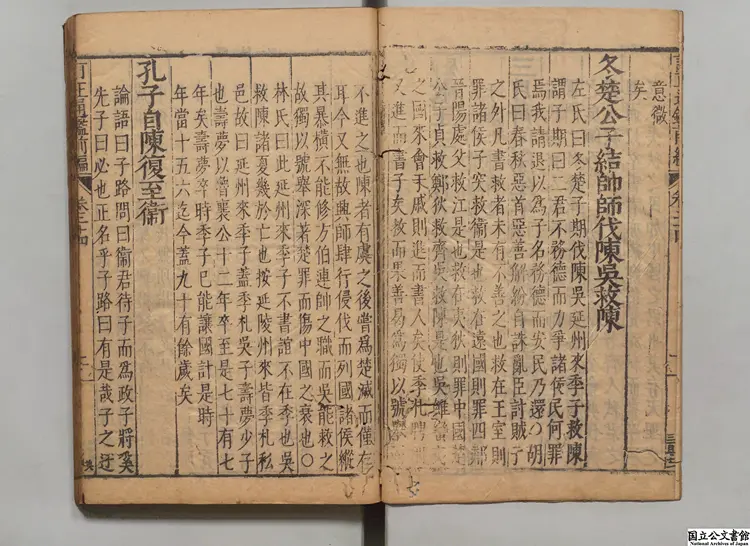 意微
矣
冬楚公子結帥師伐陳吳救陳
左氏曰冬楚子期伐陳吳延州來季子救陳
謂子期曰二君不務德而力爭諸侯民何罪
焉我請退以爲子名務德而安民乃還○胡
氏曰春秋惡首惡善解紛自誅亂臣討賊子
之外凡書救者未有不善之也救在王室則
罪諸侯子突救衛是也救在遠國則罪四鄰
晉陽處父救江是也救在夷狄則罪中國楚
公子貞救鄭狄救齊吳救陳是也吳雖蠻夷
之國來會于戚則進而書人矣使季札聘
又進而書子矣救而果善曷爲獨以號舉
不進之也陳者有虞之後嘗爲楚滅而僅存
耳今又無故興師肆行侵伐而列國諸侯縱
其暴橫不能修方伯連帥之職而吳能救之
故獨以號舉深著楚罪而傷中國之衰也○
林氏曰此延州來季子不書諱不在季也吳
救陳諸夏幾於亡也按延陵州來皆季札私
邑故曰延州來季子蓋季札吳子壽夢少子
也壽夢以魯襄公十二年卒至是七十有七
年矣壽夢卒時季子已能讓國計是時
年當十五六迄今蓋九十有餘歲矣
孔子自陳復至衛
論語曰子路問曰衛君待子而爲政子將奚
先子曰必也正名乎子路曰有是哉子之迂
卷二十四
国立公文書館
National Archives of Japan